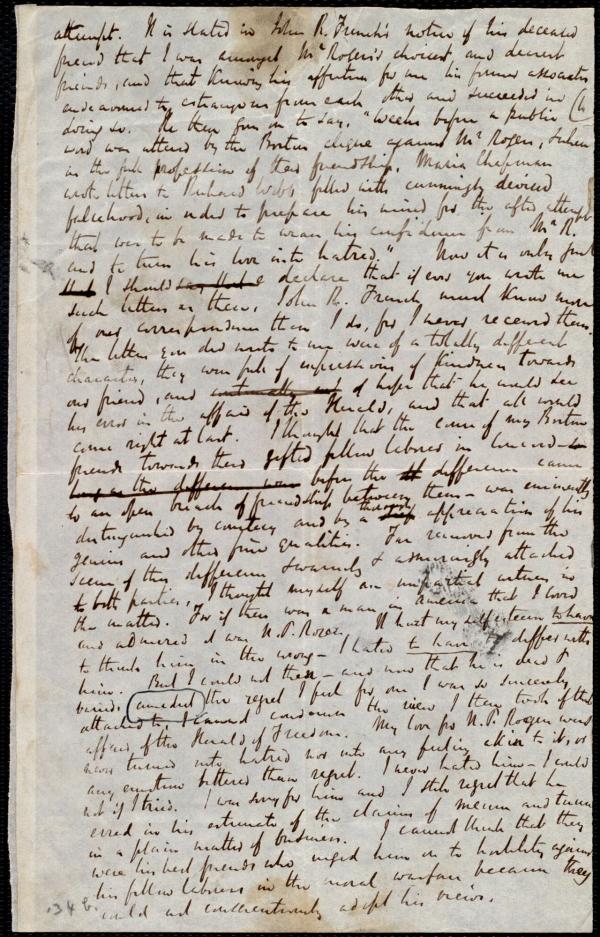 attempt. It is stated in John R. French's notice of his deceased
friend that I was amongst Mr Rogers's choicest and dearest
friends, and that knowing his affection for me his former associates
endeavoured to estrange us from each other and succeeded in
doing so. He then goes on to say, "Weeks before a public
word was uttered by the Boston clique against Mr Rogers, &
in the full profession of their friendship, Maria Chapman
wrote letters to Richard Webb filled with cunningly devised
falsehood, in order to prepare his mind for the after attempt
that was to be made to wean his confidence from Mr R.
and to turn his love into hatred." Now it is only just
that I should say that I declare that if ever you wrote me
such letters as these, John R. French must know more
of our correspondence than I do, for I never received them.
The letters you did write to me were of a totally different
character, they were full of expressions of kindness towards
our friend, and of hope that he would see
his error in the affair of the Herald, and that all would
come right at last. I thought that the course of my Boston
friends towards their gifted fellow laborer in Concord
long as the difference were before the difference came
to an open breach of friendship between them – was eminently
distinguished by courtesy and by a thorough appreciation of his
genius and other fine qualities. Far removed from the
scene of this difference & warmly & admiringly attached
to both parties, I thought myself an impartial witness in
the matter. For if there was a man in America that I loved
and admired it was N. P. Rogers. It hurt my self esteem to have
to think him in the wrong – I hated to have to differ with
him. But I could not then – and now that he is dead &
buried, amidst the regret I feel for one I was so sincerely
attached to, I cannot condemn the view I then took of the
affair of the Herald of Freedom. My love for N. P. Rogers was
never turned into hatred nor into any feeling akin to it, or
any emotion bitterer than regret. I never hated him – I could
not if I tried. I was sorry for him and I still regret that he
erred in his estimate of the claims of meum and tuum
in a plain matter of business. I cannot think that they
were his best friends who urged him on to hostility against
his fellow laborers in the moral warfare because they
could not conscientiously adopt his views.